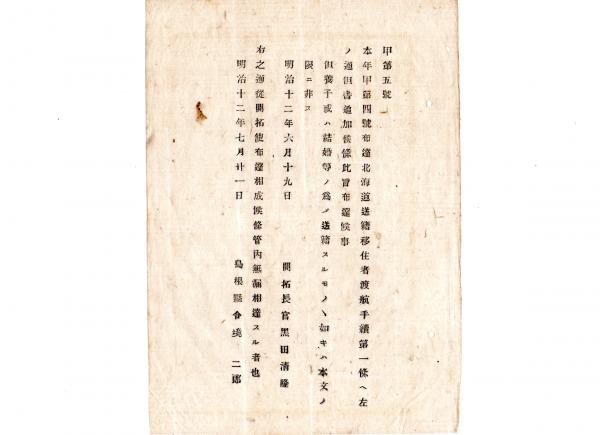 甲第五號
本年甲第四號布達北海道送籍移住者渡航手續第一條ヘ左
ノ通但書追加候條此旨布達候事
但養子或ハ結婚等ノ爲メ送籍スルモノヽ如キハ本文ノ
限ニ非ス
明治十二年六月十九日
開拓長官黑田清隆
右之通從開拓使布達相成候條管内無漏相達スル者也
明治十二年七月廿一日
島根縣令境二郎